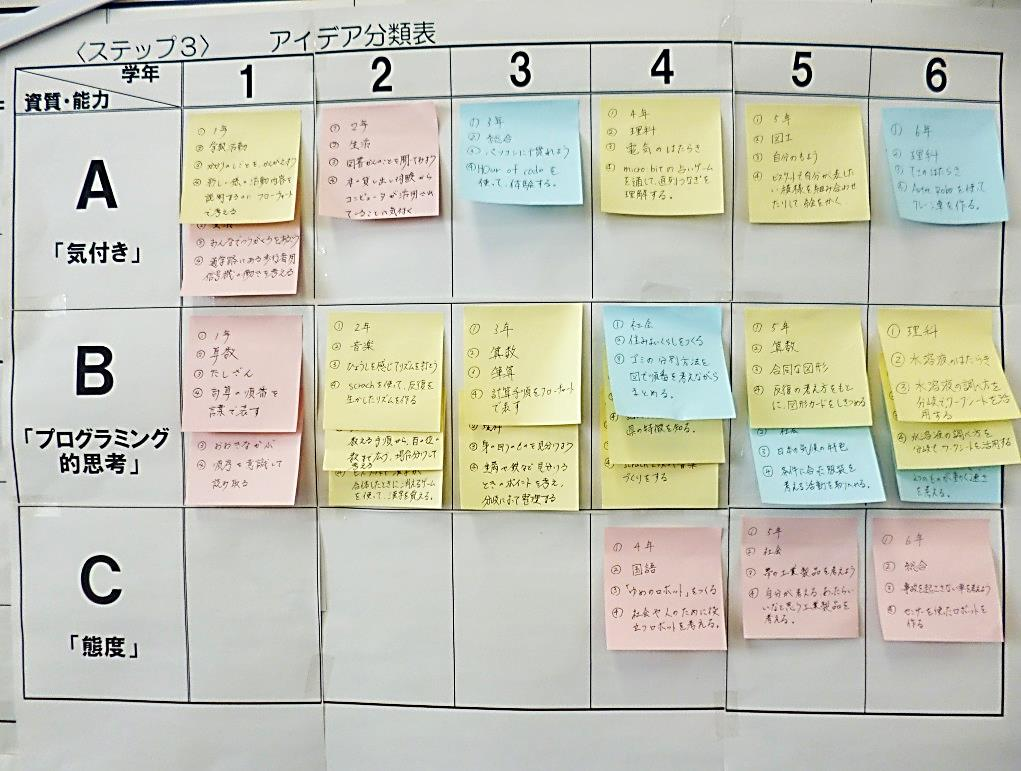 〈ステップ3〉 アイデア分類表
学年
資質・能力
1 2 3 4 5 6
A
「気付き」
① 1年
② 学級活動
④ 新しい係の活動内容を
説明するのに フローチャート
で考える
③ みんなでつうがくろをあるこう
④ 通学路にある歩行者用
信号機の働きを考える
① 2年
② 生活
③ 図書かんのことを聞いてみよう
④ 本の貸し出し体験から
コンピュータが活用されている
ことに気付く
① 3年
② 総合
③ パソコンに慣れよう
④ Hour of codeを
使って、体験する。
① 4年
② 理科
③ 電気のはたらき
④ micro bitの占いゲーム
を通して、直列つなぎを
理解する。
① 5年
② 図工
③ 自分のもよう
④ ビスケットで自分が表したい
模様を組み合わせ
たりして 絵をかく
① 6年
② 理科
③ てこのはたらき
④ Robo を使って
クレーン車を作る。
B
「プログラミング
的思考」
① 1年
② 算数
③ たしざん
④ 計算の順番を
言葉で表す
③ おおきなかぶ
④ 順序を意識して
読み取る
① 2年
② 音楽
③ ひょうしを感じてリズムを打とう
④ scrachを使って、反復を
生かしたリズムを作る
合体したときに消えるゲーム
を使って、漢字を覚える。
① 3年
② 算数
③ 筆算
④ 計算手順をフローチャート
で表す
② 理科
③ 身の回りのものを見分けよう
④ 生き物や鉄など見分ける
ときのポイントを考え、
分岐において整理する
① 社会
② 住みよいくらしをつくる
③ ゴミの分別方法を
図で順番を考えながら
まとめる。
県の特徴を知る。
づくりをする
① 5年
② 算数
③ 合同な図形
④ 反復の考え方をもと
に、図形カードをしきつめる
② 社会
③ 日本の気候の特色
④ 条件に合った服装を
考える活動を取り入れる。
① 理科
② 水溶液のはたらき
③ 水溶液の調べ方を
分岐でワークシートを活
用する
④ 水溶液の調べ方を
分岐でワークシートを活用する
を考える。
C
「態度」
① 4年
② 国語
③ 「ゆめのロボット」をつくる
④ 社会や人のために役
立つロボットを考える。
① 5年
② 社会
③ 夢の工業製品を考えよう
④ 自分が考える あったらい
いなと思う工業製品を
考える。
① 6年
② 総合
③ 事故を起こさない車を考えよう
④ センサーを使ったロボットを
作る